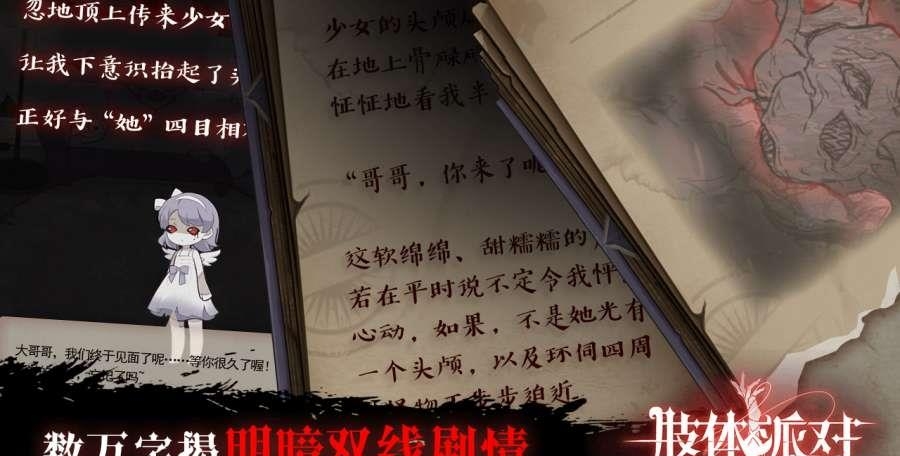 忽地顶上传来少女
让我下意识抬起了
正好与“她”四目相
少女的头颅
在地上骨碌
怔怔地看我半
“哥哥，你来了呢
这软绵绵、甜糯糯的
若在平时说不定令我怦
心动，如果，不是她光有
一个头颅，以及环伺四周
怪物正步步迫近
大哥哥，我们终于见面了呢……等你很久了喔！
了吗~
数万字揭明暗双线剧情
肢体派对